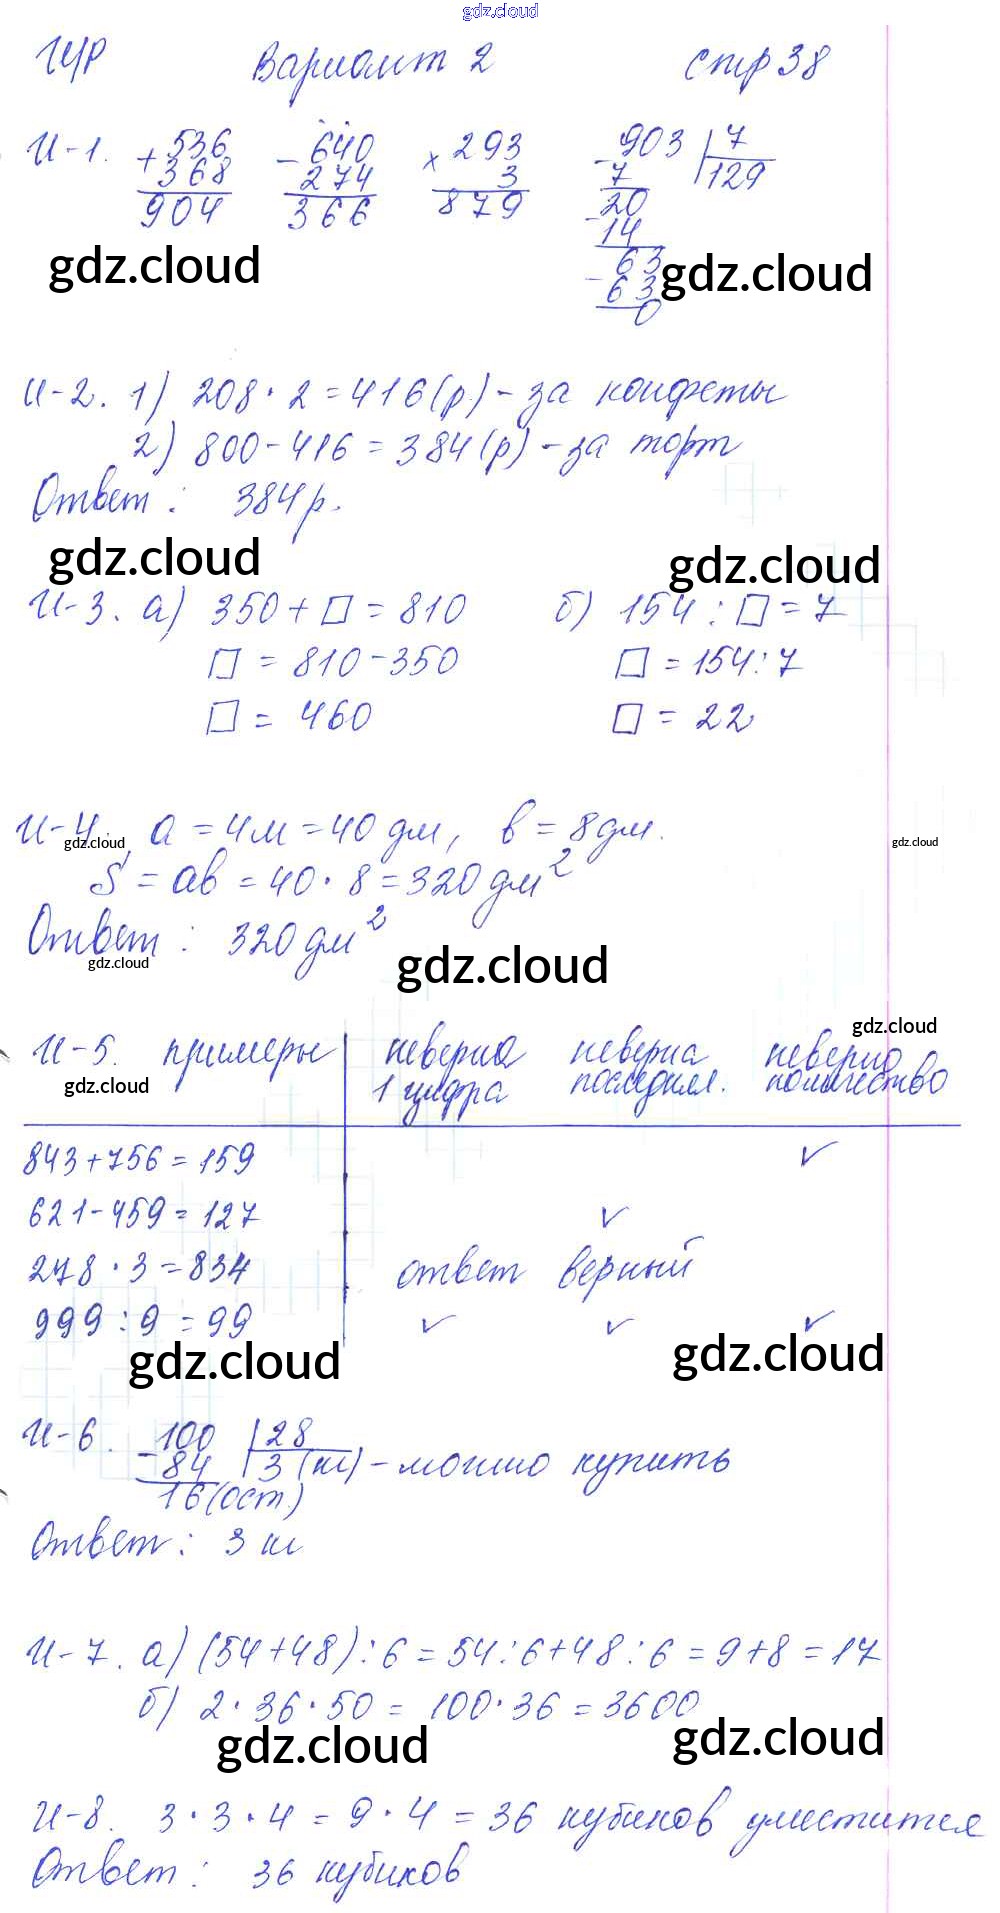 gdz.cloud
Вариант 2 стр 38
И-1. + 536 - 640 × 293 - 903 | 7
368 274 3 7 129
904 366 879 20
- 14
63
- 63
0
gdz.cloud gdz.cloud
И-2. 1) 208 · 2 = 416 (р) - за конфеты
2) 800 - 416 = 384 (р) - за торт
Ответ: 384 р.
gdz.cloud gdz.cloud
И-3. а) 350 + □ = 810 б) 154 : □ = 7
□ = 810 - 350 □ = 154 : 7
□ = 460 □ = 22
И-4. а = 4м = 40 дм, в = 8 дм.
gdz.cloud gdz.cloud
S = ав = 40 · 8 = 320 дм²
Ответ: 320 дм²
gdz.cloud gdz.cloud
gdz.cloud
И-5. примеры неверна неверна неверно
1 цифра последняя. количество
gdz.cloud
843 + 756 = 159 ✓
621 - 459 = 127 ✓
278 · 3 = 834 ответ верный
999 : 9 = 99 ✓ ✓ ✓
gdz.cloud gdz.cloud
И-6. - 100 | 28
84 3 (кг) - можно купить
16 (ост.)
Ответ: 3 кг
И-7. а) (54 + 48) : 6 = 54 : 6 + 48 : 6 = 9 + 8 = 17
б) 2 · 36 · 50 = 100 · 36 = 3600
gdz.cloud gdz.cloud
И-8. 3 · 3 · 4 = 9 · 4 = 36 кубиков уместится
Ответ: 36 кубиков